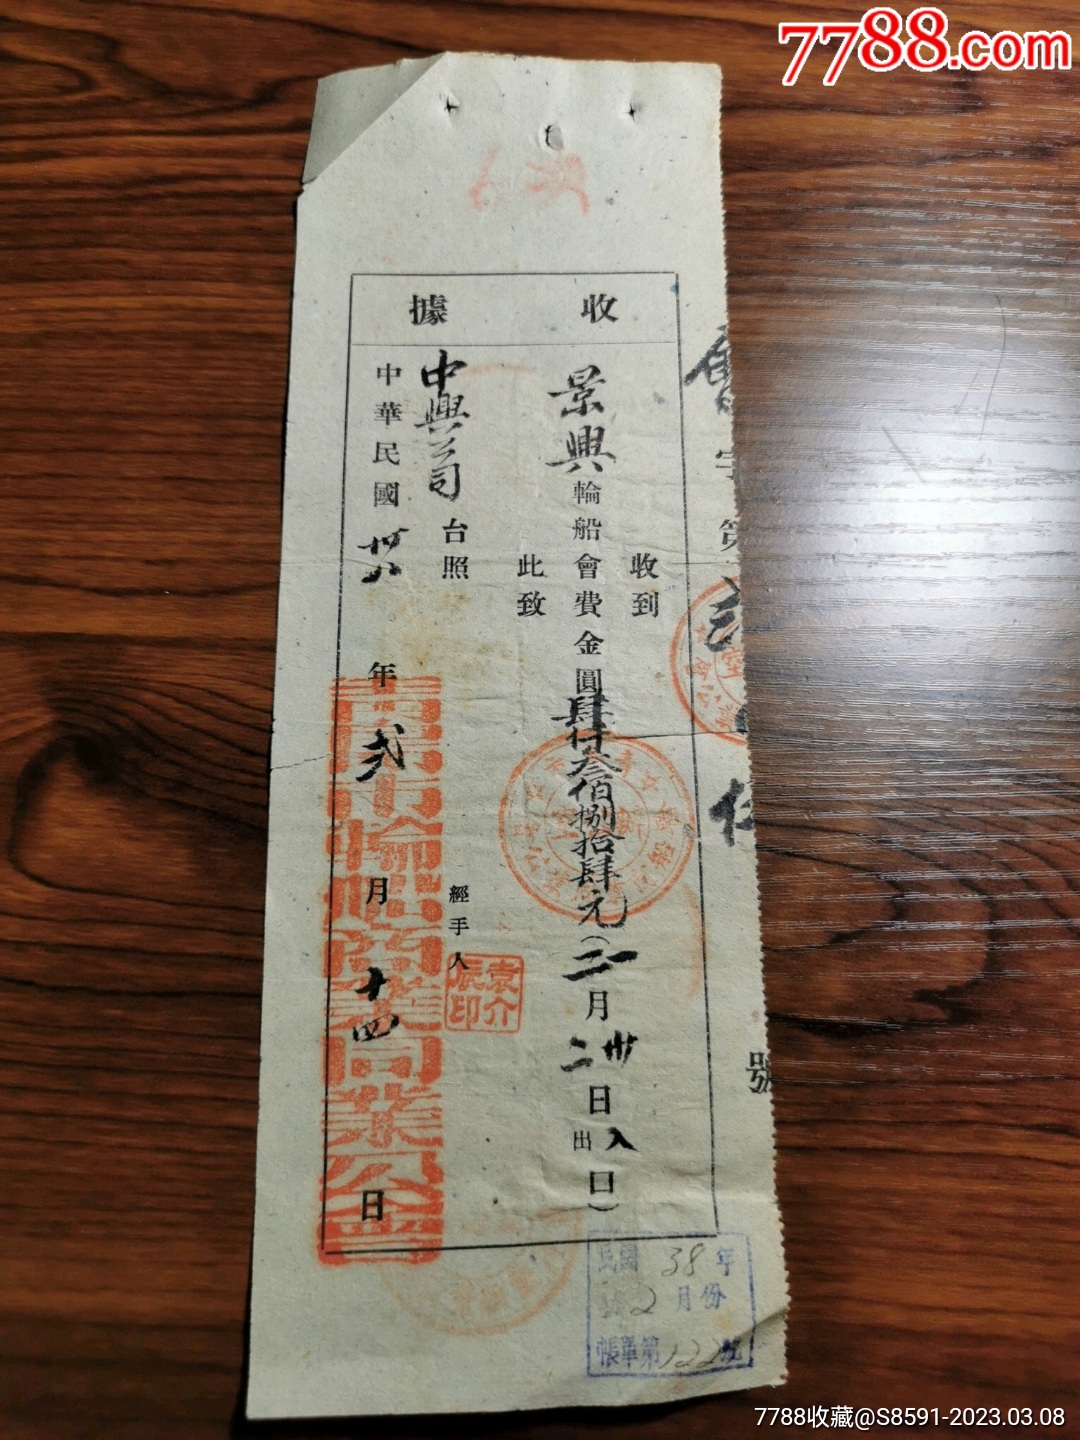 7788.com
收據
收到
景興輪船會費金圓肆仟叁佰捌拾肆元（一二月卅二日入出口）
此致
中興公司台照
經手人
袁介辰印
中華民國卅八年弍月十四日
輪船商業同業公會
字第
號
民國38年
2月份
帳單第122號
7788收藏@S8591-2023.03.08